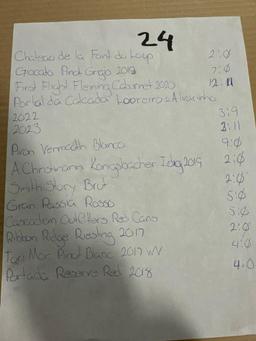 24
Chateau de la Font du Loup 2:Ø
Giocato Pinot Grigio 2019 7:Ø
First Flight Fleming Cabernet 2020 12:11
Portal da Calcada Loureiro & Alvarinho
2022 3:9
2023 2:11
Aran Vermouth Blanco 9:Ø
A Christmann Konigsbacher Idig 2019 2:Ø
Smith Story Brut 2:Ø
Gran Passia Rosso 5:Ø
Cascadian Outfitters Red Cans 5:Ø
Ribbon Ridge Riesling 2017 2:Ø
Tori Mor Pinot Blanc 2017 WV 4:Ø
Portada Reserve Red 2018 4:0